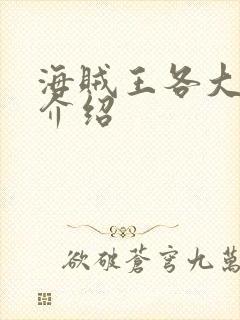 海贼王各大
介绍
欲破蒼穹九萬